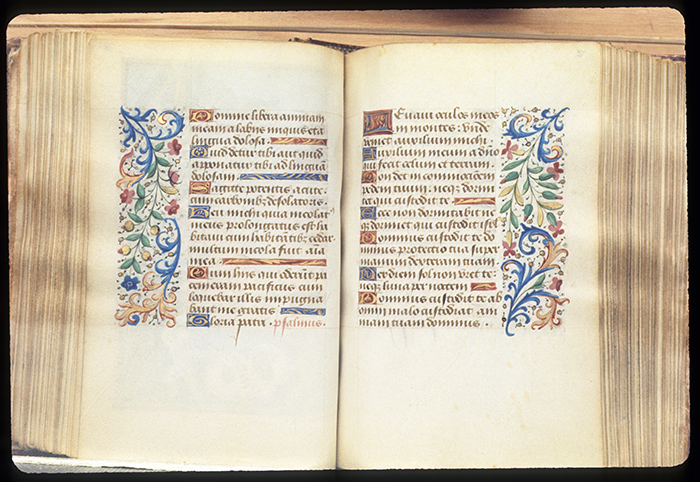 Domine libera animam
meam a labiis iniquis et a
lingua dolosa.
Quid detur tibi aut quid
apponatur tibi ad linguā
dolosam.
Sagitte potentis acute
cum carbonibꝰ desolatoriis.
Heu michi quia incolatꝰ
meus prolongatus est ha
bitaui cum habitātibꝰ cedar
multum incola fuit aīa
mea.
Cum hiis qui oderūt pa
cem eram pacificus cum
loquebar illis impugna
bant me gratis
Gloria patri. psalmus.
Leuaui oculos meos
in montes: vnde
veniet auxilium michi.
Auxilium meum a dño
qui fecit celum et terram.
Non det in commotionem
pedem tuum: neqꝫ dormi
tat qui custodit te
Ecce non dormitabit ne
qꝫ dormiet qui custodit isr̄l
Dominus custodit te do
minus protectio tua super
manum dexteram tuam
Per diem sol non vret te
neqꝫ luna per noctem
Dominus custodit te ab
omni malo custodiat ani
mam tuam dominus.